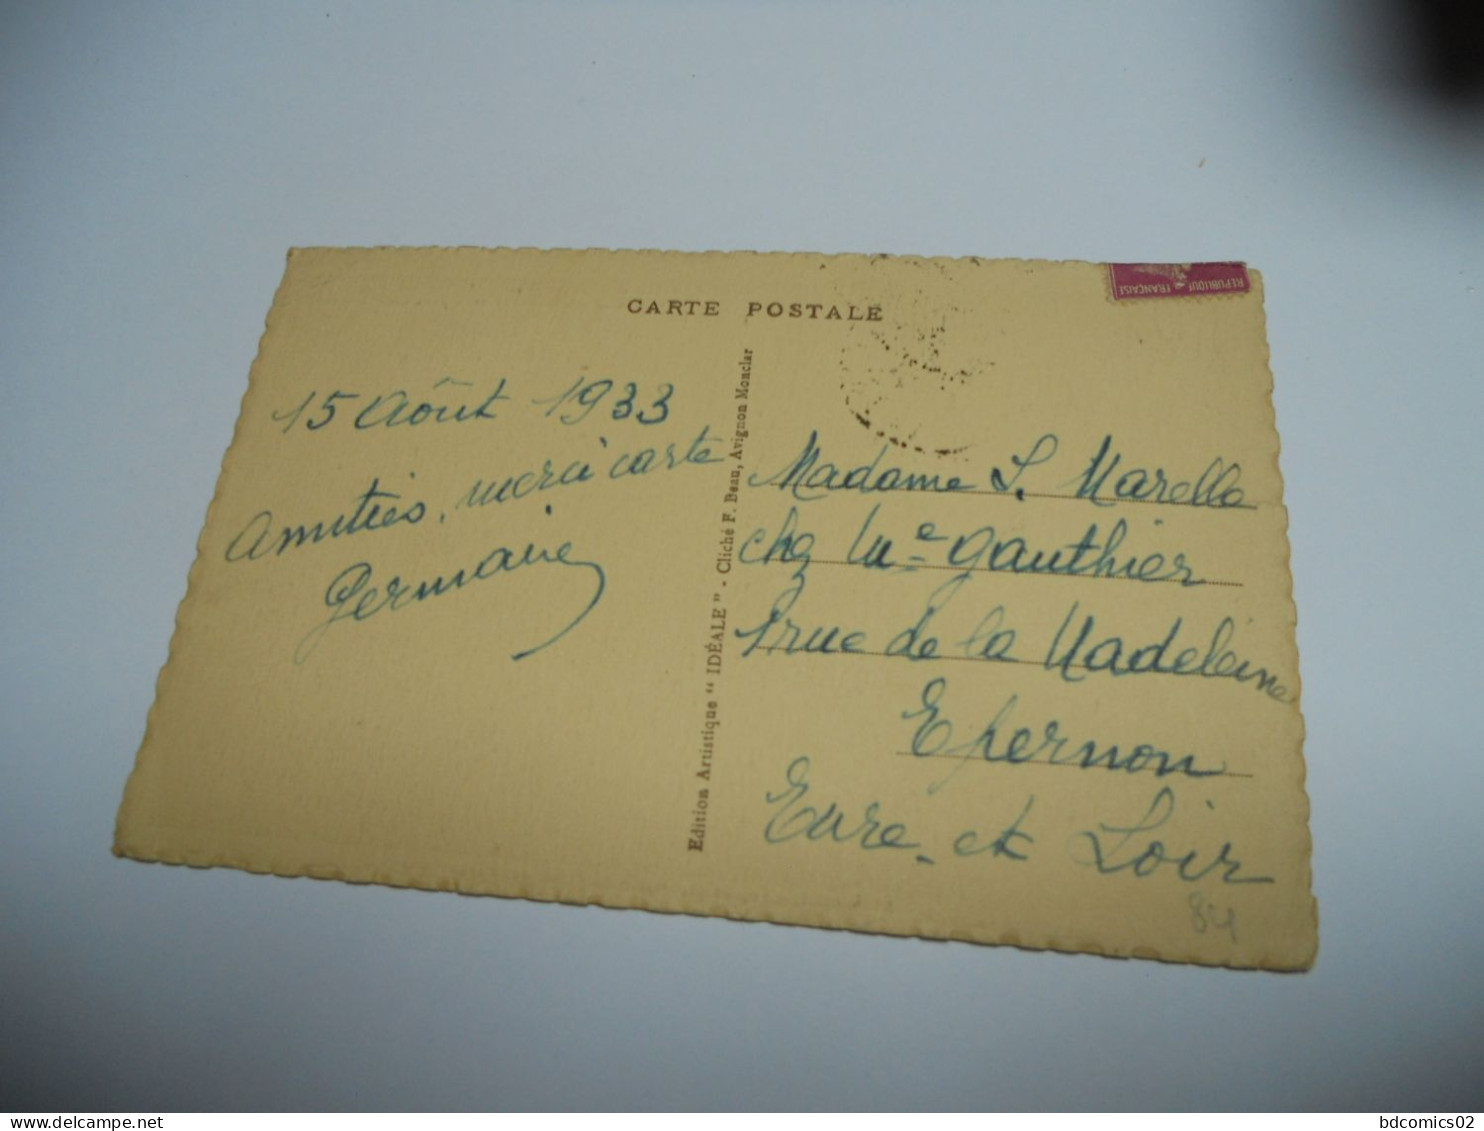 CARTE POSTALE
RÉPUBLIQUE FRANÇAISE
15 Août 1933
Amitiés, merci carte
Germaine
Edition Artistique "IDÉALE" - Cliché F. Beau, Avignon Monclar
Madame S. Marelle
chez Me Gauthier
rue de la Madeleine
Epernon
Eure - et Loir
84
bdcomics02